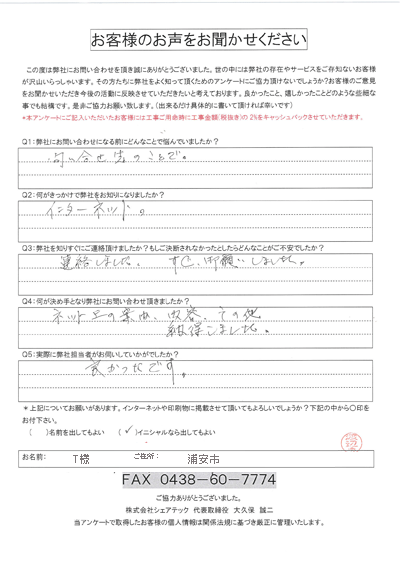 お客様のお声をお聞かせください
この度は弊社にお問い合わせを頂き誠にありがとうございました。世の中には弊社の存在やサービスをご存知ないお客様
が沢山いらっしゃいます。その方たちに弊社をよく知って頂くためのアンケートにご協力頂けないでしょうか?お客様のご意見
をお聞かせいただき今後の活動に反映させていただきたいと考えております。良かったこと、嬉しかったことどのような些細な
事でも結構です。是非ご協力お願い致します。(出来るだけ具体的に書いて頂ければ幸いです)
*本アンケートにご記入いただいたお客様には工事ご用命時に工事金額(税抜き)の2%をキャッシュバックさせていただきます。
Q1:弊社にお問い合わせになる前にどんなことで悩んでいましたか?
問い合せ先のことで。
Q2:何がきっかけで弊社をお知りになりましたか?
インターネット。
Q3:弊社を知りすぐにご連絡頂けましたか?もしご決断されなかったとしたらどんなことがご不安でしたか?
連絡しました。すぐ、御願いしました。
Q4:何が決め手となり弊社にお問い合わせ頂きましたか?
ネット上の 内容、その他
納得しました。
Q5:実際に弊社担当者がお伺いしていかがでしたか?
良かったです。
*上記についてお願いがあります。インターネットや印刷物に掲載させて頂いてもよろしいでしょうか?下記の中から〇印を
お付下さい。
( )名前を出してもよい (✓)イニシャルなら出してもよい
お名前: T様 ご住所: 浦安市
FAX 0438-60-7774
ご協力ありがとうございました。
株式会社シェアテック 代表取締役 大久保 誠二
当アンケートで取得したお客様の個人情報は関係法規に基づき厳正に管理いたします。